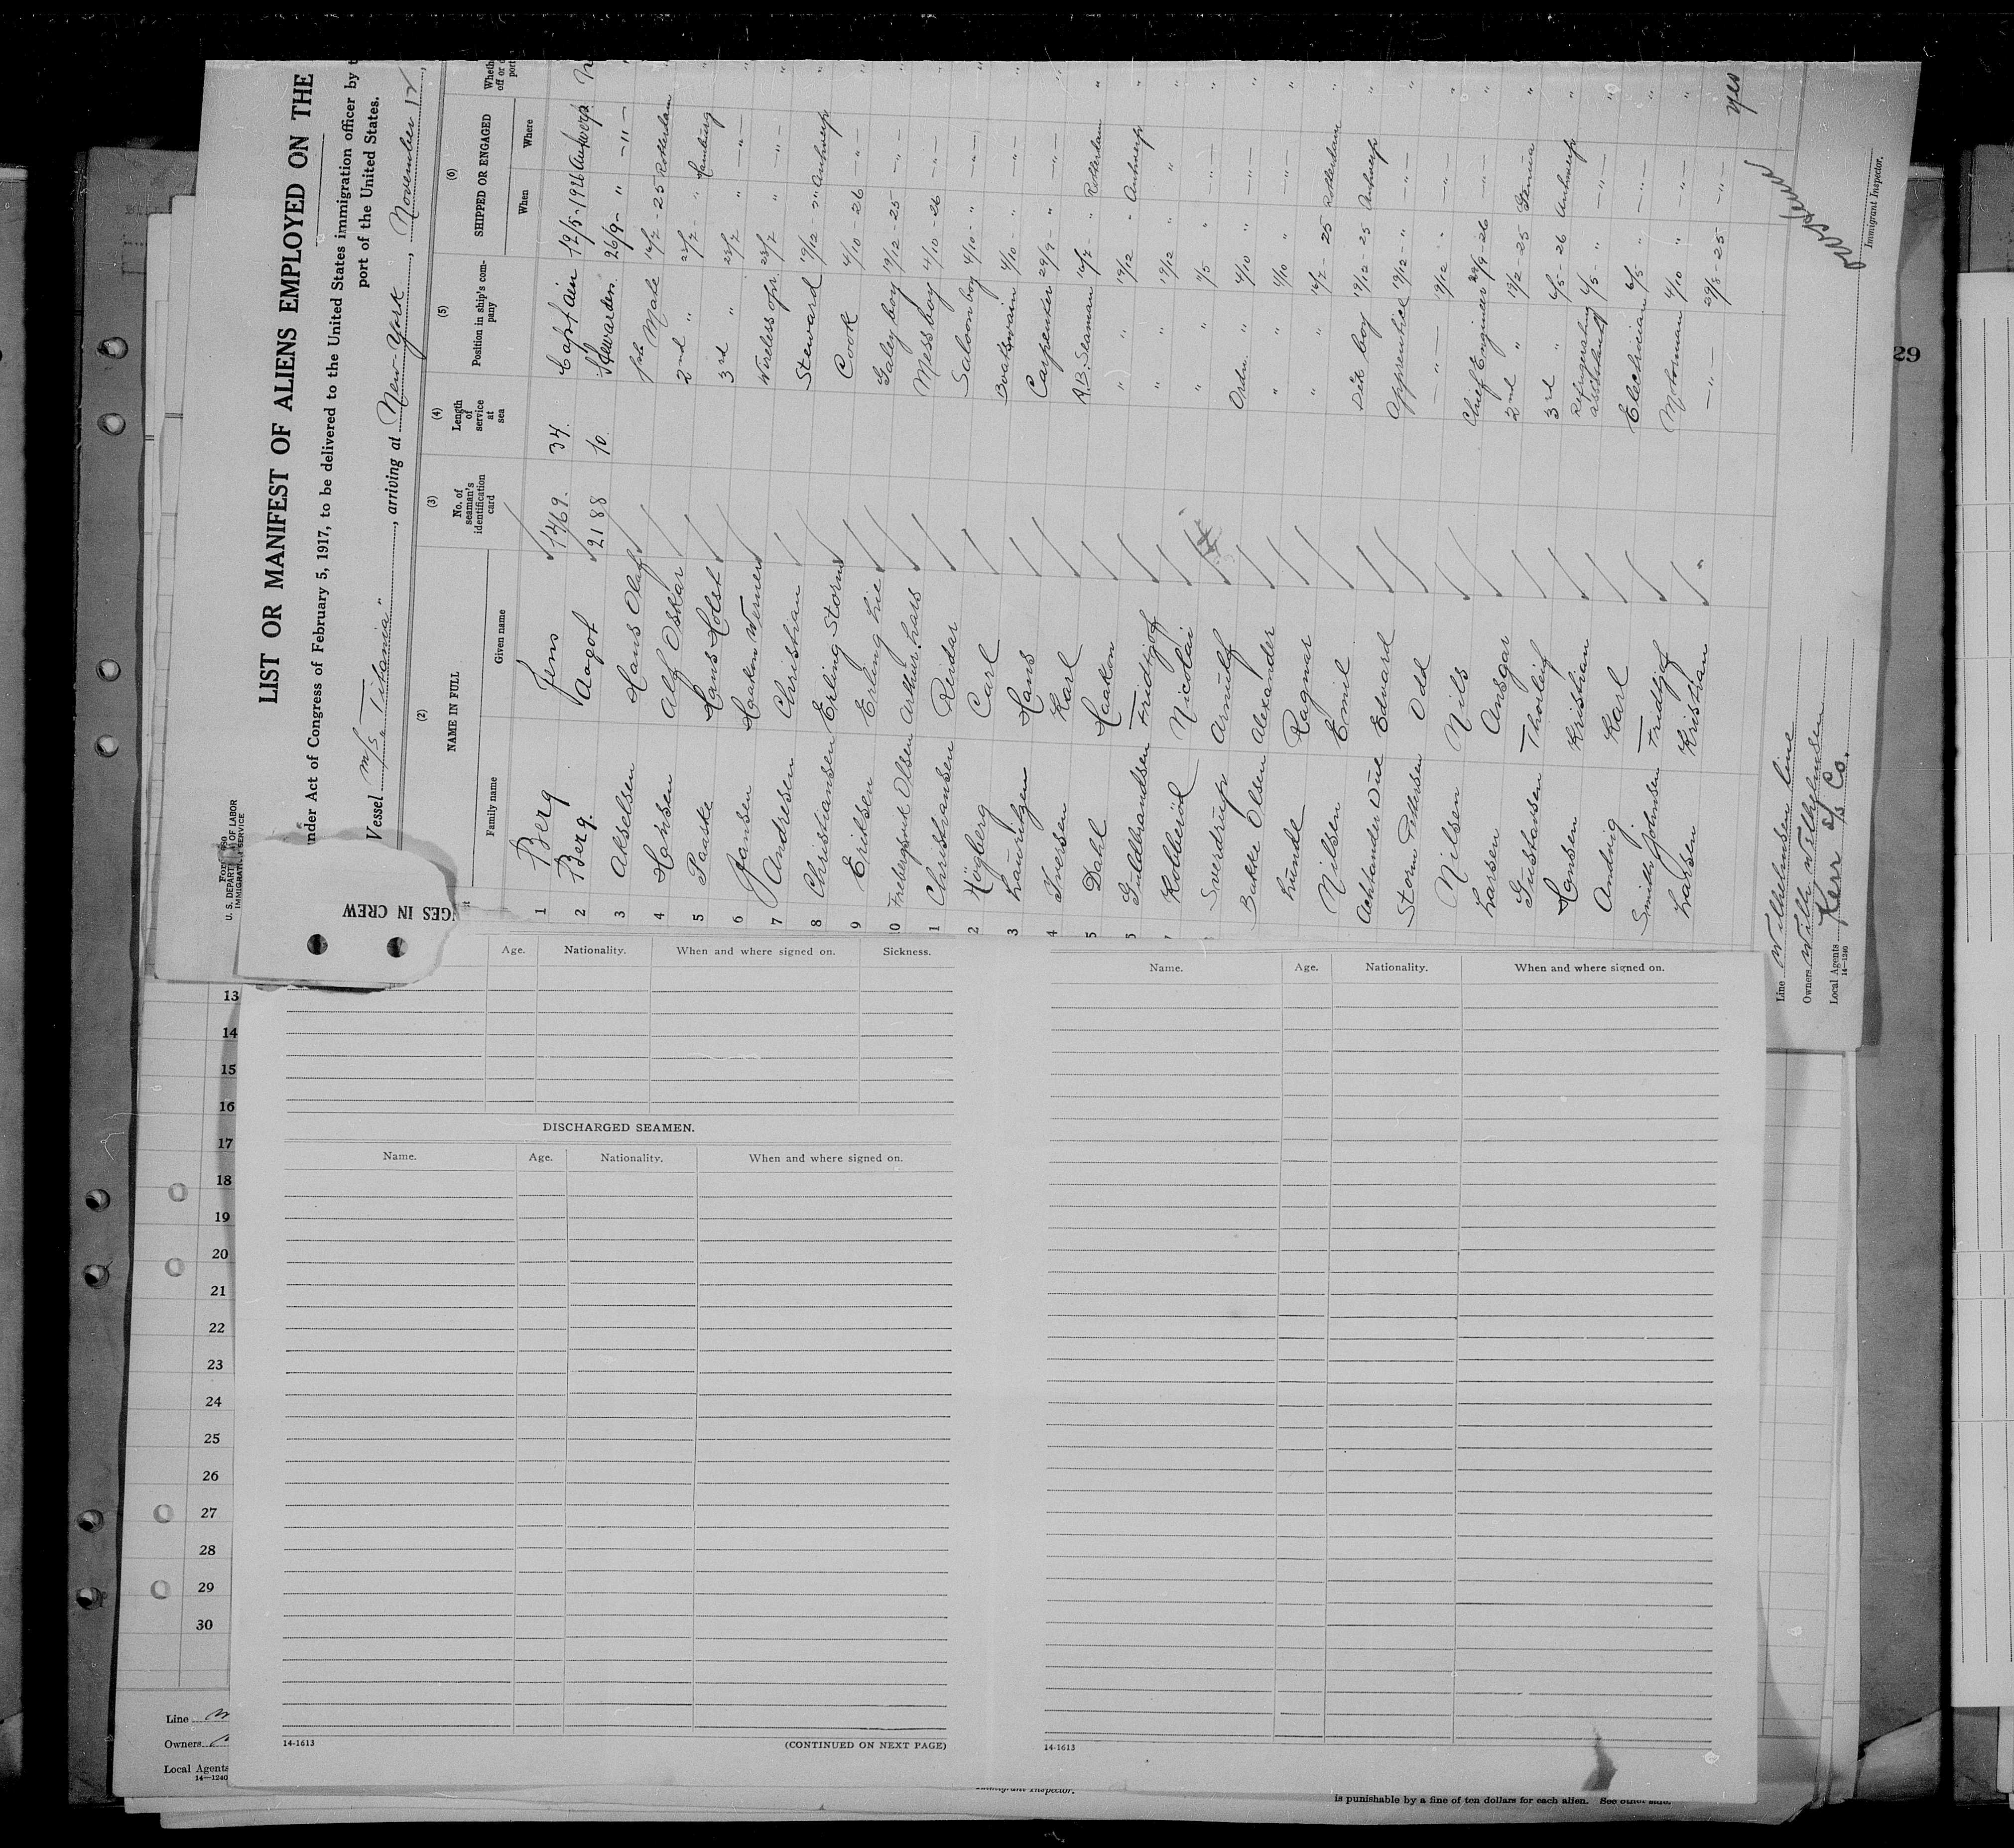 LIST OR MANIFEST OF ALIENS EMPLOYED ON THE
under Act of Congress of February 5, 1917, to be delivered to the United States immigration officer by
port of the United States.
Vessel m/s "Titania", arriving at New-York, November 12
U. S. DEPARTMENT OF LABOR
IMMIGRATION SERVICE
(2) (3) (4) (5) (6)
NAME IN FULL No. of seaman's identification card Length of service at sea Position in ship's company SHIPPED OR ENGAGED
Family name Given name When Where
1 Berg Jens 1469. 34. Captain 12/5-1926 Antwerp
2 Berg. Aagot 2188 10. Stewardess 26/9- " -"-
3 Akselsen Hans Olaf 1st Mate 16/7-25 Rotterdam
4 Hansen Alf Oskar 2nd " " Hamburg
5 Paaske Hans Holst 3rd " 23/7 " -"-
6 Jansen Haakon Werner Wireless opr. 23/7 " -"-
7 Andresen Christian Steward 19/12 " Antwerp
8 Christiansen Erling Storm Cook 4/10-26 -"-
9 Eriksen Erling Lie Galey boy 19/12-25 -"-
0 Olsen Arthur Lars Messboy 4/10-26 -"-
1 Christiansen Reidar Saloon boy 4/10- " -"-
2 Högberg Carl Boatswain 4/10- " -"-
3 Lauritzen Hans Carpenter 29/9- " -"-
4 Iversen Karl A.B. Seaman 16/7- " Rotterdam
5 Dahl Haakon " 19/12 - Antwerp
Guldbrandsen Fridtjof " 19/12 " "
7 Nicolai " "
Sverdrup Arnulf Ordn. " 4/10 " -"-
Bakke Olsen Alexander " 4/10 " -"-
Lunde Ragnar " 16/7-25 Rotterdam
Nilsen Emil Dek boy 19/12-25 Antwerp
Achlander Due Edvard Apprentice 19/12- " -"-
Storm Pettersen Odd -"- 19/12 " -"-
Nilsen Nils Chief Engineer 29/9-26 -"-
Larsen Ansgar 2nd " -25 Genua
Gustavsen Tholeif 3rd " 6/5-26 Antwerp
Hansen Kristian Refrigerating assistant -"-
Andvig Karl Electrician 6/5- " -"-
Smith Johnsen Fridtjof Motorman 4/10 " -"-
Larsen Kristian -"- -25 -"-
yes
Immigrant Inspector.
Line Wilhelmsen Line
Owners Wilh. Wilhelmsen
Local Agents Kerr S/S Co.
14-1240
29
GES IN CREW
Age. Nationality. When and where signed on. Sickness.
DISCHARGED SEAMEN.
Name. Age. Nationality. When and where signed on.
14-1613 (CONTINUED ON NEXT PAGE)
Name. Age. Nationality. When and where signed on.
14-1613
13
14
15
16
17
18
19
20
21
22
23
24
25
26
27
28
29
30
Line
Owners
Local Agents
14-1240
Immigrant Inspector.
is punishable by a fine of ten dollars for each alien. See other side.